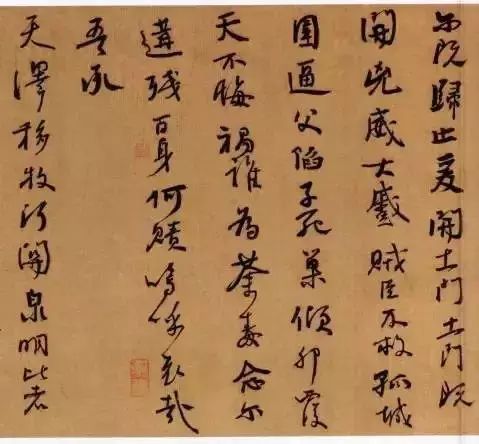 尔既歸止爰開土門土門既
開兇威大蹙賊臣不救孤城
圍逼父陷子死巢傾卵覆
天不悔禍誰為荼毒念尔
遘殘百身何贖嗚呼哀哉
吾承
天澤移牧河關泉明比者